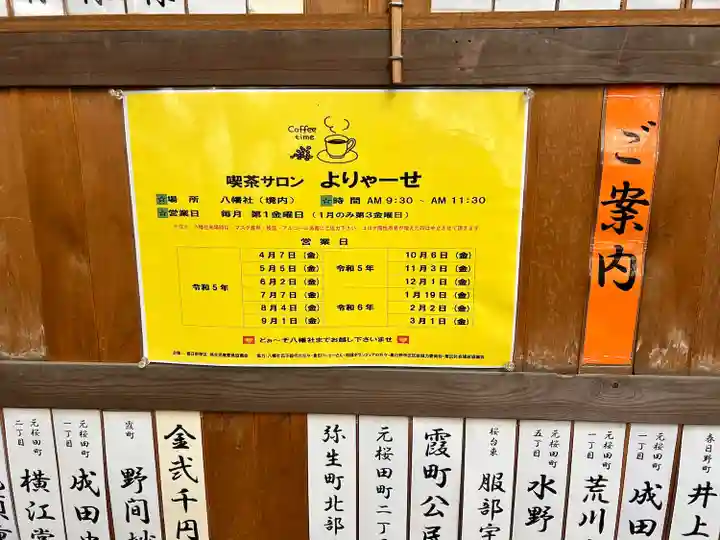 Coffee
time
喫茶サロン よりゃーせ
☆場 所 八幡社(境内) ☆時 間 AM 9:30 ~ AM 11:30
☆営業日 毎月 第1金曜日(1月のみ第3金曜日)
営 業 日
令和5年
4月7日(金)
5月5日(金)
6月2日(金)
7月7日(金)
8月4日(金)
9月1日(金)
令和5年
10月6日(金)
11月3日(金)
12月1日(金)
令和6年
1月19日(金)
2月2日(金)
3月1日(金)
どぉ~ぞ八幡社までお越し下さいませ
ご案内
春日野町
井上
元桜田町
一丁目
成田
元桜田町
一丁目
荒川
元桜田町
五丁目
水野
桜台東
服部
霞町公民
元桜田町二丁
弥生町北部
金弐千円
霞町
野間
元桜田町
一丁目
成田
元桜田町
二丁目
横江